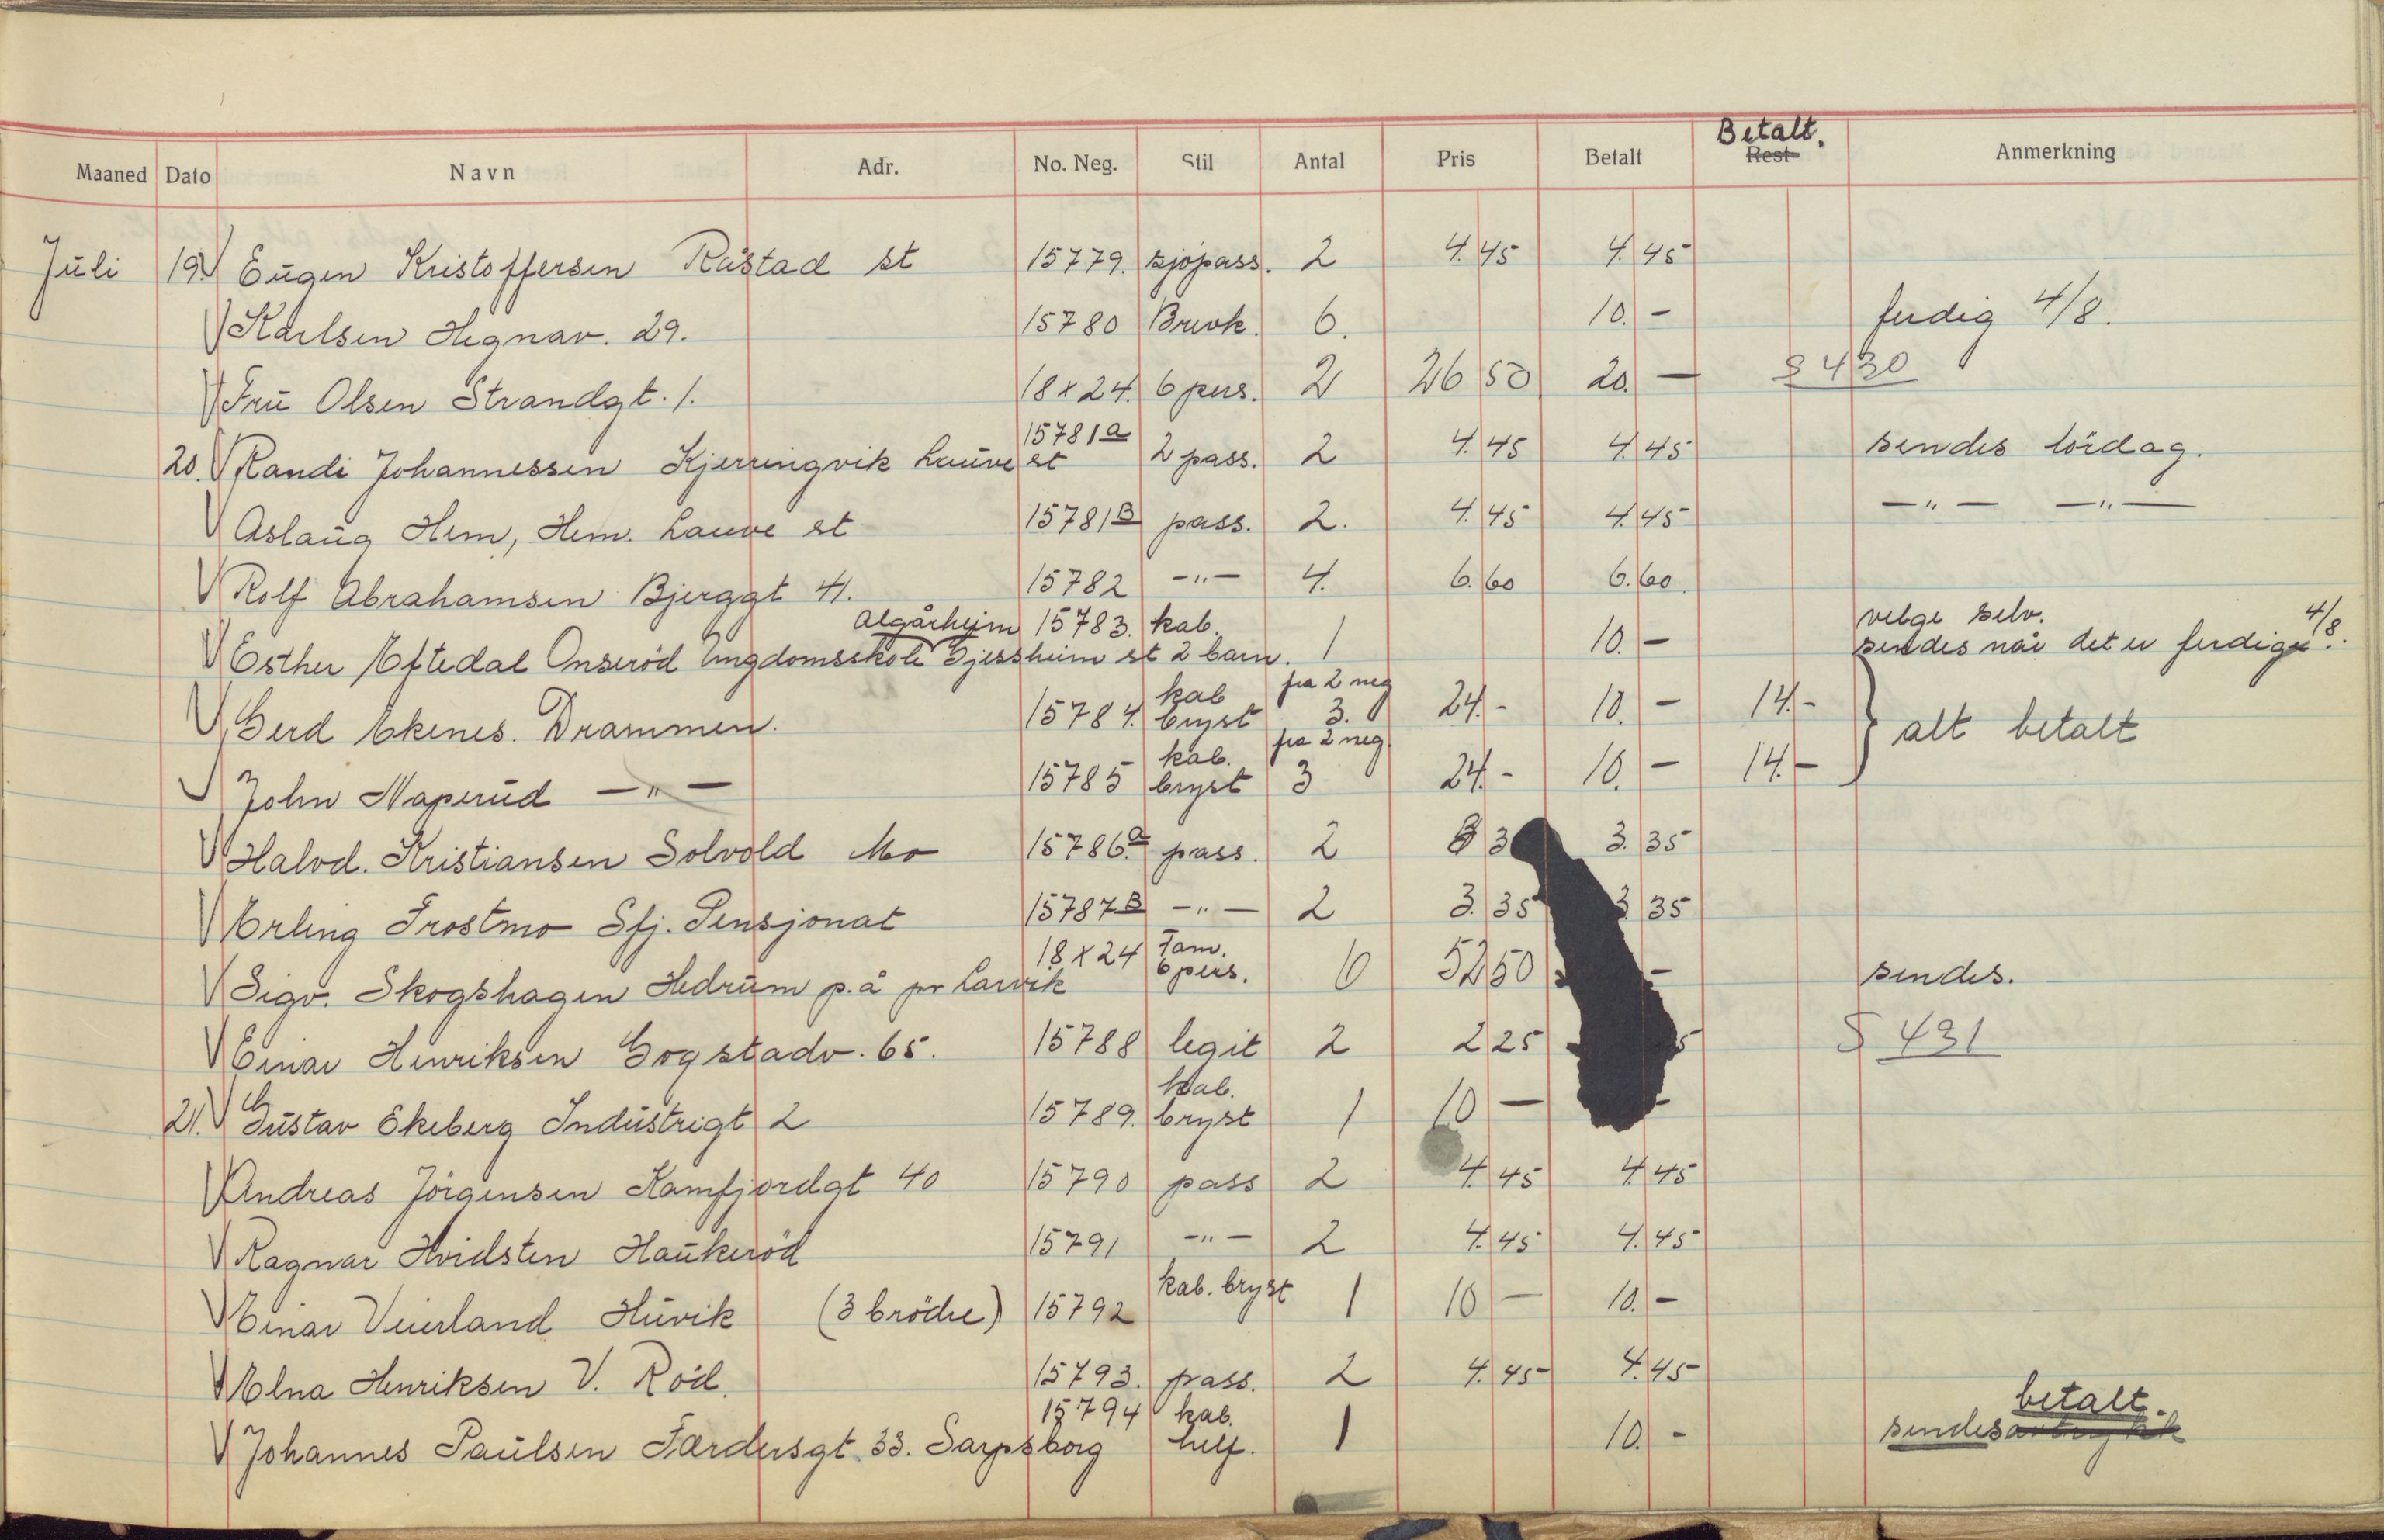 Betalt.
Maaned Dato Navn Adr. No. Neg. Stil Antal Pris Betalt Rest Anmerkning
Juli 19. Eugen Kristoffersen Råstad st 15779. sjöpass. 2 4.45 4.45
Karlsen Hegnav. 29. 15780 Brevk. 6. 10.- ferdig 4/8.
Fru Olsen Strandgt. 1. 18x24. 6 pers. 2 26 50 20. — S 430
20. Randi Johannessen Kjerringvik Lauve st 15781a 2 pass. 2 4.45 4.45 sendes lördag.
Aslaug Hem, Hem. Lauve st 15781B pass. 2. 4.45 4.45 —"— —"—
Rolf Abrahamsen Bjerggt 41. 15782 -"- 4. 6.60 6.60
Algårheim 15783. kab. velge selv. 4/8
Esther Eftedal Onseröd Ungdomsskole Gjessheim st 2 barn. 1 10.- sendes når det er ferdig.
Gerd Ekenes. Drammen. 15784. kab bryst fra 2 neg 3. 24.- 10.- 14.-
alt betalt
John Naperud —"— 15785 kab. bryst fra 2 neg. 3 24.- 10.- 14.-
Halvd. Kristiansen Solvold Mo 15786.a pass. 2 3 3 3.35
Erling Frostmo Sfj. Pensjonat 15787B -"- 2 3.35 3 35
Sigv. Skogshagen Hedrum p.å pr Larvik 18x24 Fam. 6 pers. 6 52 50 - sendes.
Einar Henriksen Gogstadv. 65. 15788 legit 2 2 25 5 S 431
21. Gustav Ekeberg Industrigt 2 15789. kab. bryst 1 10 — -
Andreas Jörgensen Kamfjordgt 40 15790 pass 2 4.45 4.45
Ragnar Hvidsten Haukeröd 15791 -"- 2 4.45 4.45
Einar Veierland Huvik (3 brödre) 15792 kab. bryst 1 10 — 10.-
Elna Henriksen V. Röd. 15793. pass. 2 4.45 4.45
Johannes Paulsen Færdersgt. 33. Sarpsborg 15794 kab. helf. 1 10.- betalt.
sendes